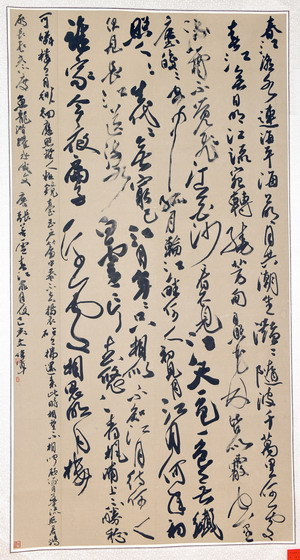 春江潮水連海平海上明月共潮生灩灩隨波千萬里何處
春江無月明江流宛轉繞芳甸月照花林皆似霰空里
流霜不覺飛汀上白沙看不見江天一色無纖
塵皎皎空中孤月輪江畔何人初見月江月何年初
照人人生代代無窮已江月年年只相似不知江月待何人
但見長江送流水白雲一片去悠悠青楓浦上不勝愁
誰家今夜扁舟子何處相思明月樓
可憐樓上月徘徊應照離人妝鏡臺玉戶簾中卷不去擣衣砧上拂還來此時相望不相聞願逐月華流照君鴻
雁長飛光不度魚龍潛躍水成文唐張若虛春江花月夜